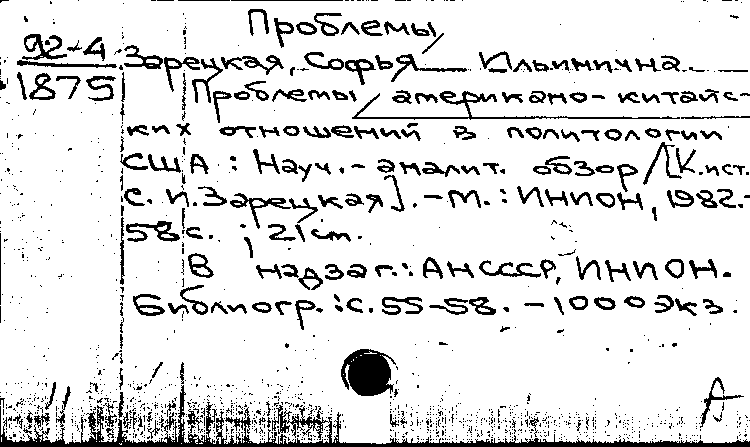 Проблемы
92-4
1875
Зарецкая, Софья Ильинична.
Проблемы / американо-китайс-
ких отношений в политологии
США : Науч.-аналит. обзор / [К.ист.
с. И.Зарецкая]. -М. : ИНИОН, 1982.-
58с. ; 21 см.
В надзаг.: АН СССР, ИНИОН.
Библиогр. : с. 55-58. - 1000 экз.
А